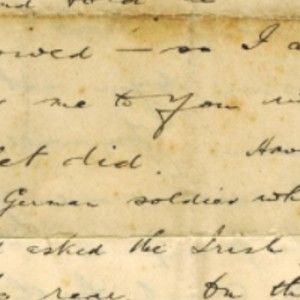 and told
owed — so I a
me to You
et did. Hav
German soldier wh
asked the Irish
rear. On th